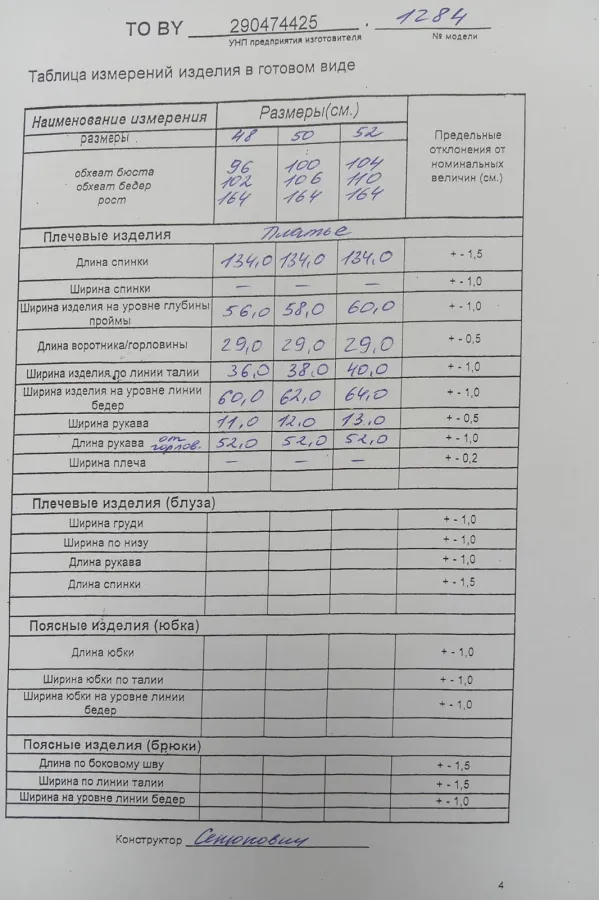 TO BY 290474425 . 1284
УНП предприятия изготовителя № модели
Таблица измерений изделия в готовом виде
Наименование измерения Размеры(см.) Предельные отклонения от номинальных величин (см.)
размеры 48 50 52
обхват бюста 96 100 104
обхват бедер 102 106 110
рост 164 164 164
Плечевые изделия Платье
Длина спинки 134,0 134,0 134,0 + - 1,5
Ширина спинки – – – + - 1,0
Ширина изделия на уровне глубины проймы 56,0 58,0 60,0 + - 1,0
Длина воротника/горловины 29,0 29,0 29,0 + - 0,5
Ширина изделия по линии талии 36,0 38,0 40,0 + - 1,0
Ширина изделия на уровне линии бедер 60,0 62,0 64,0 + - 1,0
Ширина рукава 11,0 12,0 13,0 + - 0,5
Длина рукава от горлов. 52,0 52,0 52,0 + - 1,0
Ширина плеча – – – + - 0,2
Плечевые изделия (блуза)
Ширина груди + - 1,0
Ширина по низу + - 1,0
Длина рукава + - 1,0
Длина спинки + - 1,5
Поясные изделия (юбка)
Длина юбки + - 1,0
Ширина юбки по талии + - 1,0
Ширина юбки на уровне линии бедер + - 1,0
Поясные изделия (брюки)
Длина по боковому шву + - 1,5
Ширина по линии талии + - 1,5
Ширина на уровне линии бедер + - 1,0
Конструктор
4